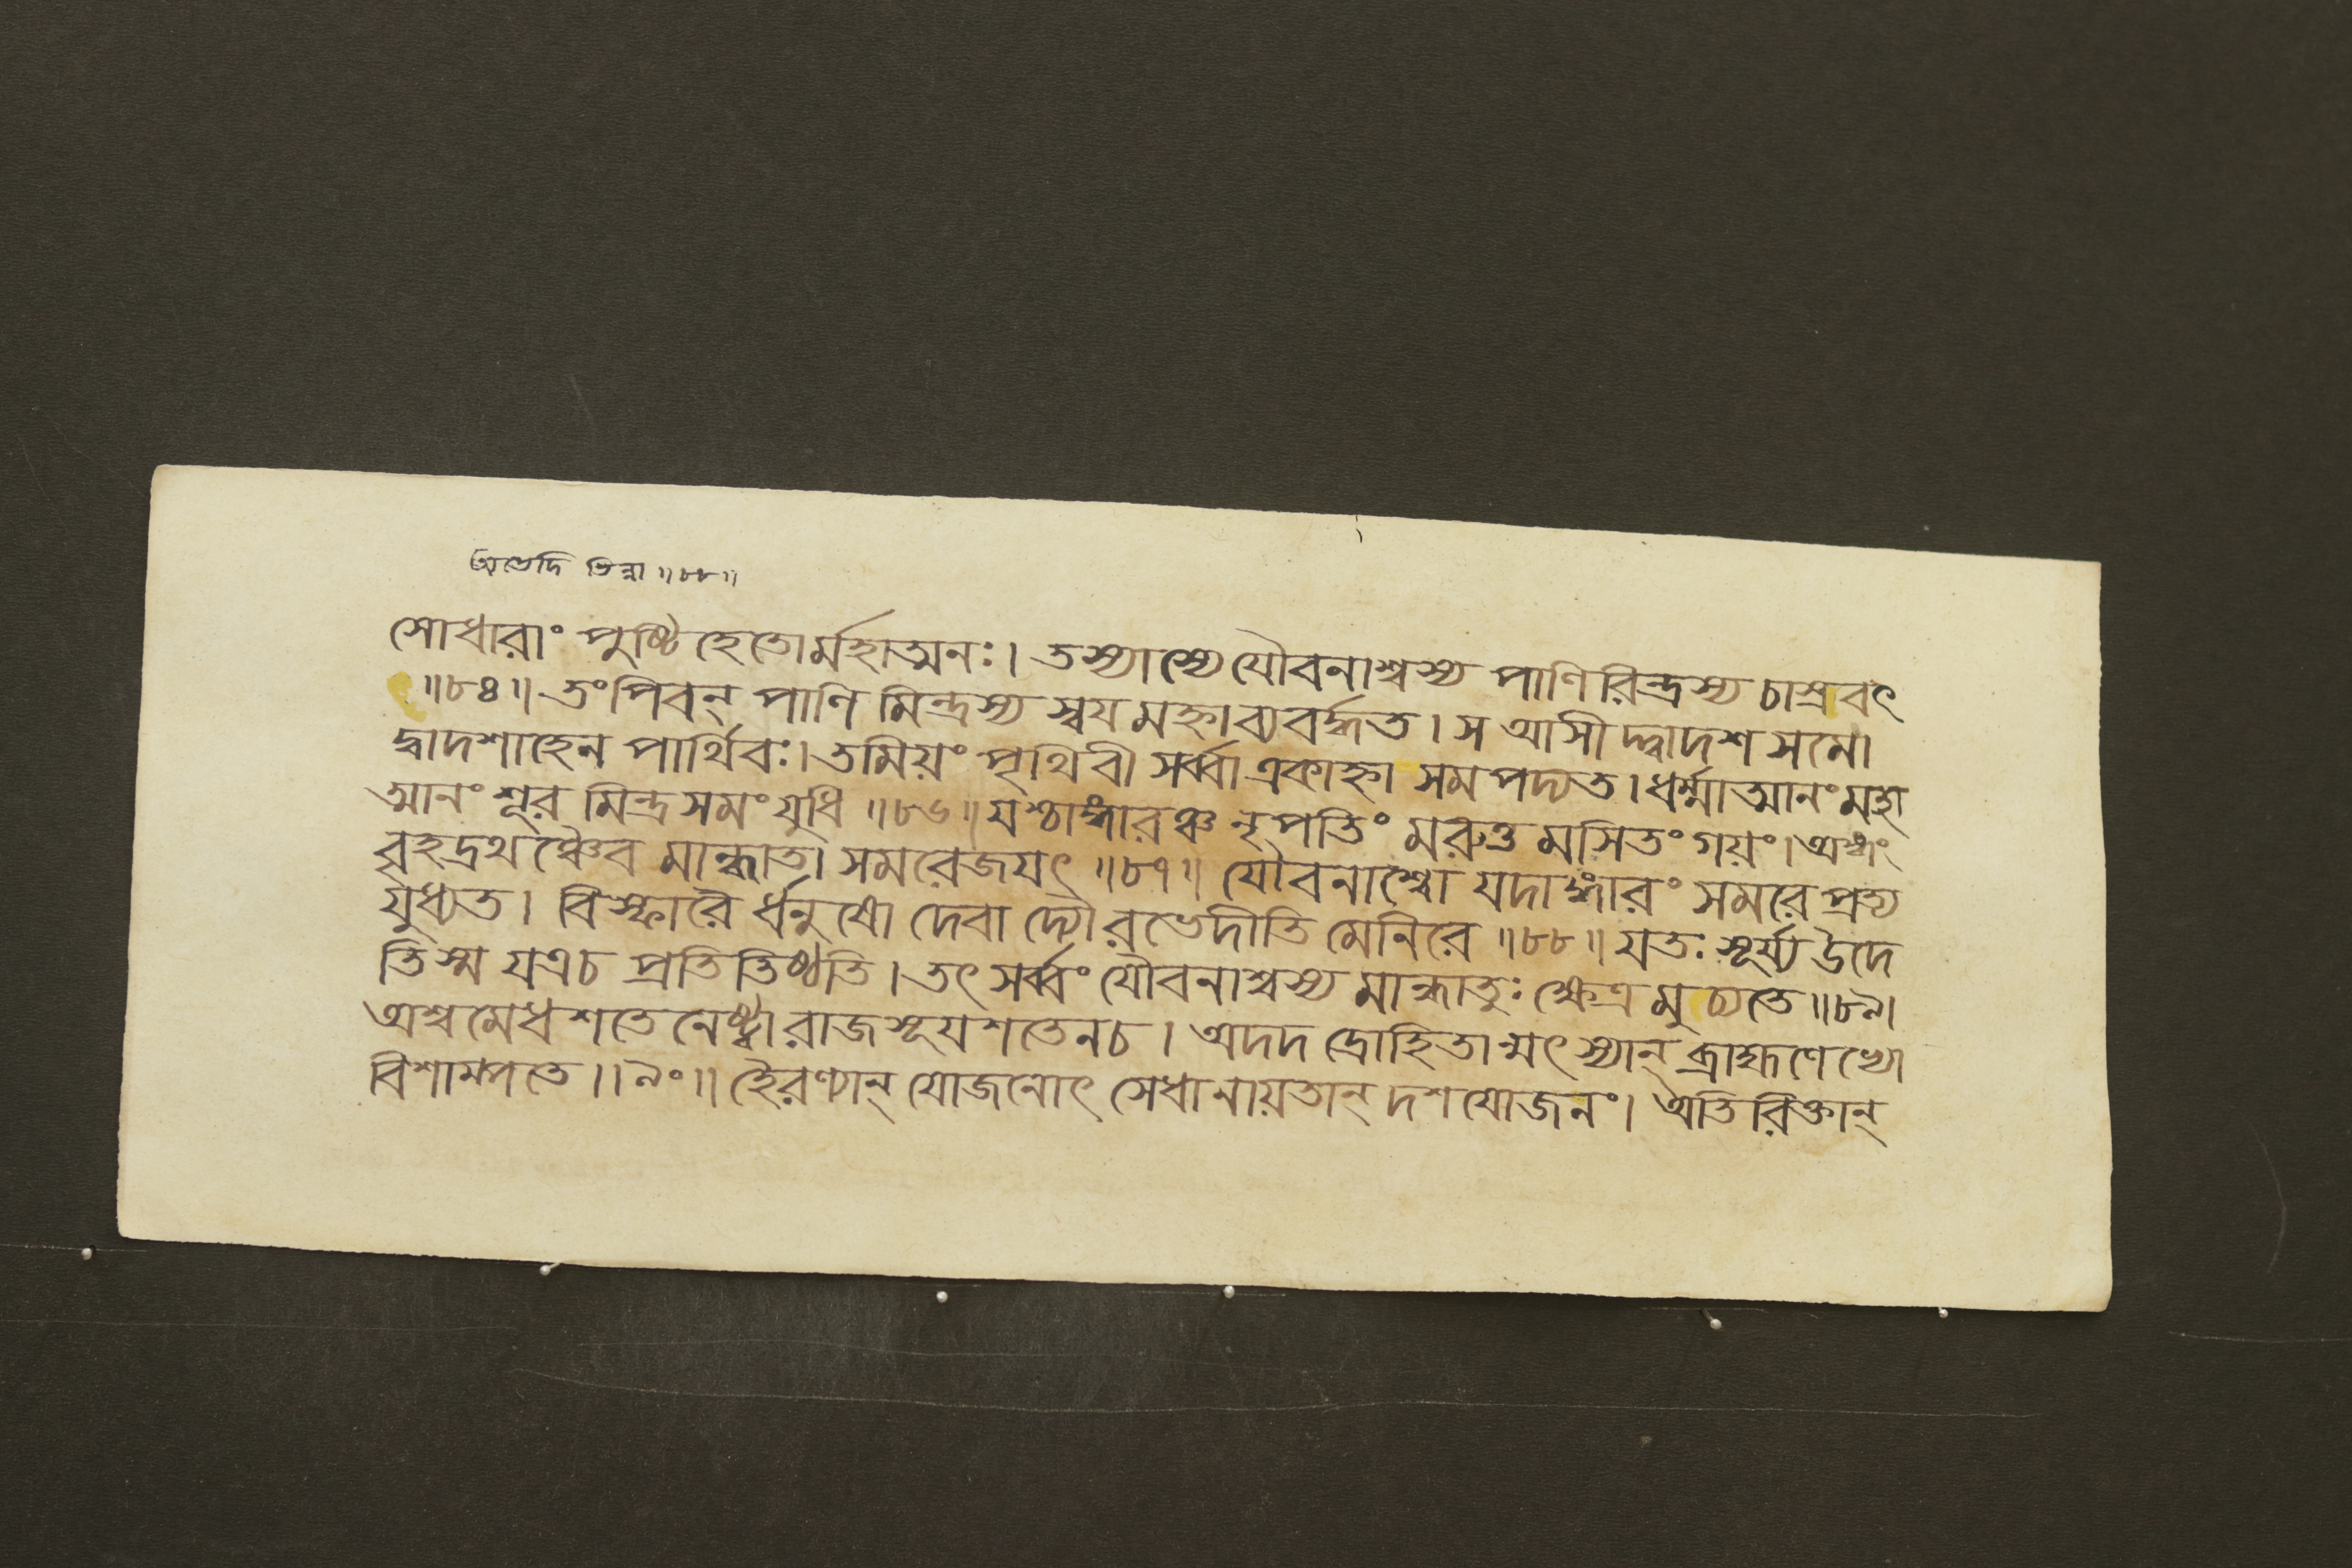 অভেদি ভিন্না ॥৮৮॥
সোধারাং পুষ্টি হেতোর্মহাত্মনঃ। তস্যাস্যে যৌবনাশ্বস্য পাণিরিন্দ্রস্য চাস্রবৎ
॥৮৪॥ তং পিবন্ পাণি মিন্দ্রস্য স্বযমহ্না ব্যবর্দ্ধত। স আসীদ্দ্বাদশ সমো
দ্বাদশাহেন পার্থিবঃ। তমিয়ং পৃথিবী সর্ব্বা একাহ্না সমপদ্যত। ধর্ম্মাত্মানং মহা
ত্মানং শূর মিন্দ্রসমং যুধি ॥৮৬॥ যশ্চাঙ্গারঞ্চ নৃপতিং মরুত্ত মসিতং গয়ং। অঙ্গং
বৃহদ্রথঞ্চৈব মান্ধাতা সমরেজযৎ ॥৮৭॥ যৌবনাশ্বো যদাঙ্গারং সমরে প্রত্য
যুধ্যত। বিস্ফারৈ র্ধনুষো দেবা দ্যৌরভেদীতি মেনিরে ॥৮৮॥ যতঃ সূর্য্য উদে
তিস্ম যত্রচ প্রতিতিষ্ঠতি। তৎ সর্ব্বং যৌবনাশ্বস্য মান্ধাতুঃ ক্ষেত্র মুচ্যতে ॥৮৯।
অশ্বমেধ শতেনেষ্ট্বা রাজসূয শতেনচ। অদদ দ্রোহিতান্মৎস্যান্ ব্রাহ্মণেভ্যো
বিশাম্পতে ॥৯০॥ হৈরণ্যান্ যোজনোৎ সেধানায়তান্ দশযোজনং। অতিরিক্তান্